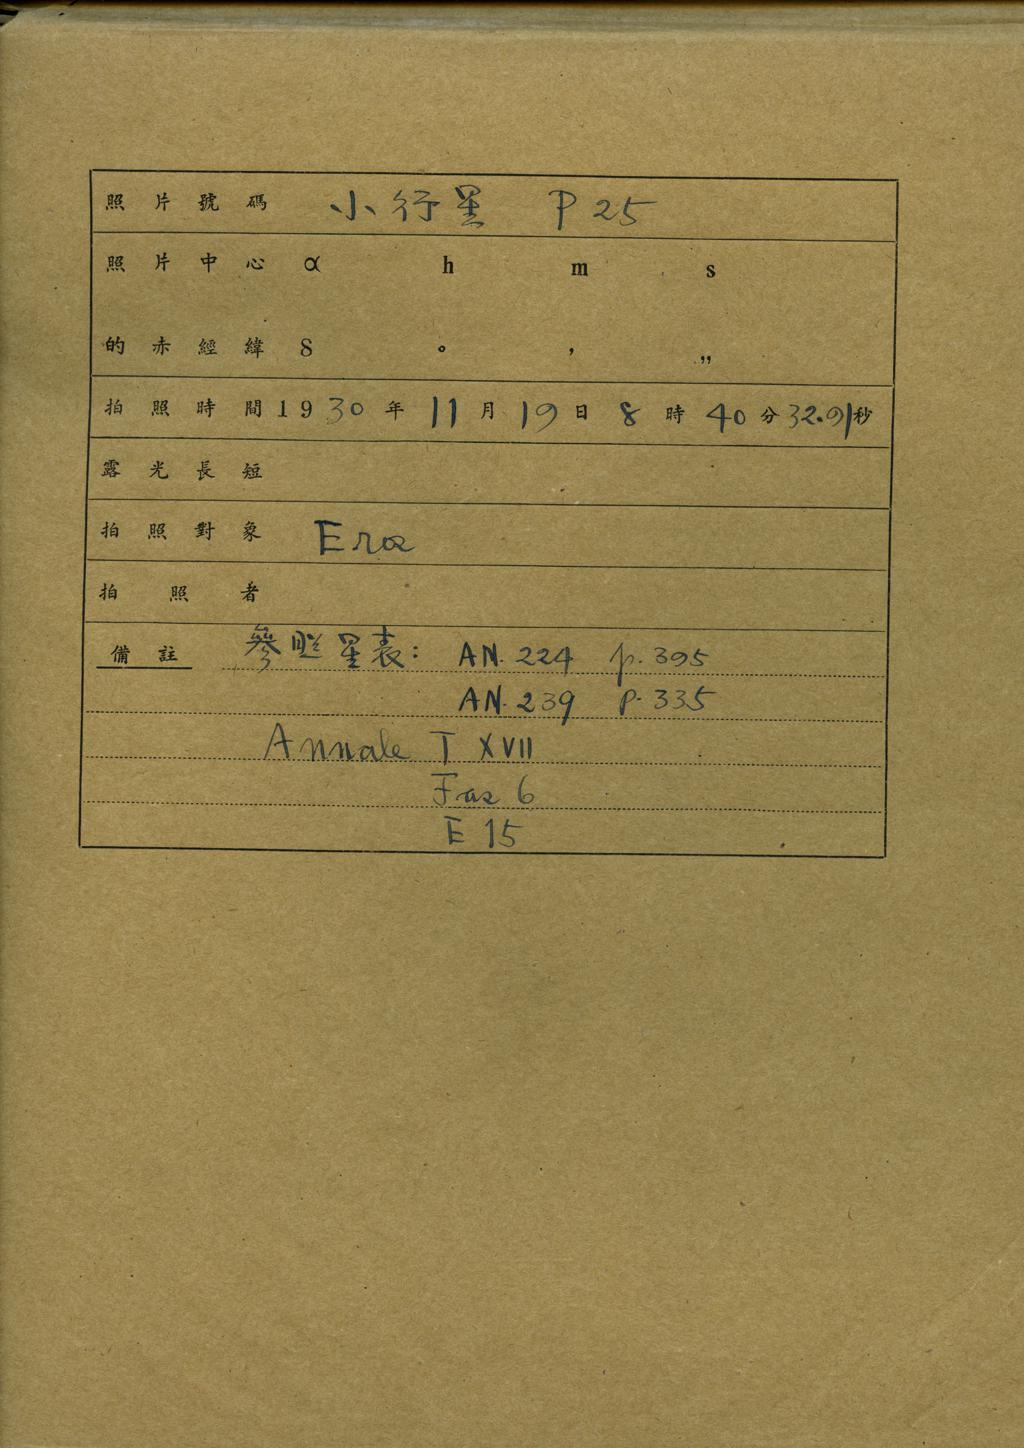 照片號碼 小行星 P 25
照片中心 α h m s
的赤經緯 δ ° ′ ″
拍照時間 1930年 11月 19日 8時 40分 32.91秒
露光長短
拍照對象 Eros
拍照者
備註 參照星表: AN. 224 p. 395
AN. 239 p. 335
Annale T XVII
Fas 6
E 15